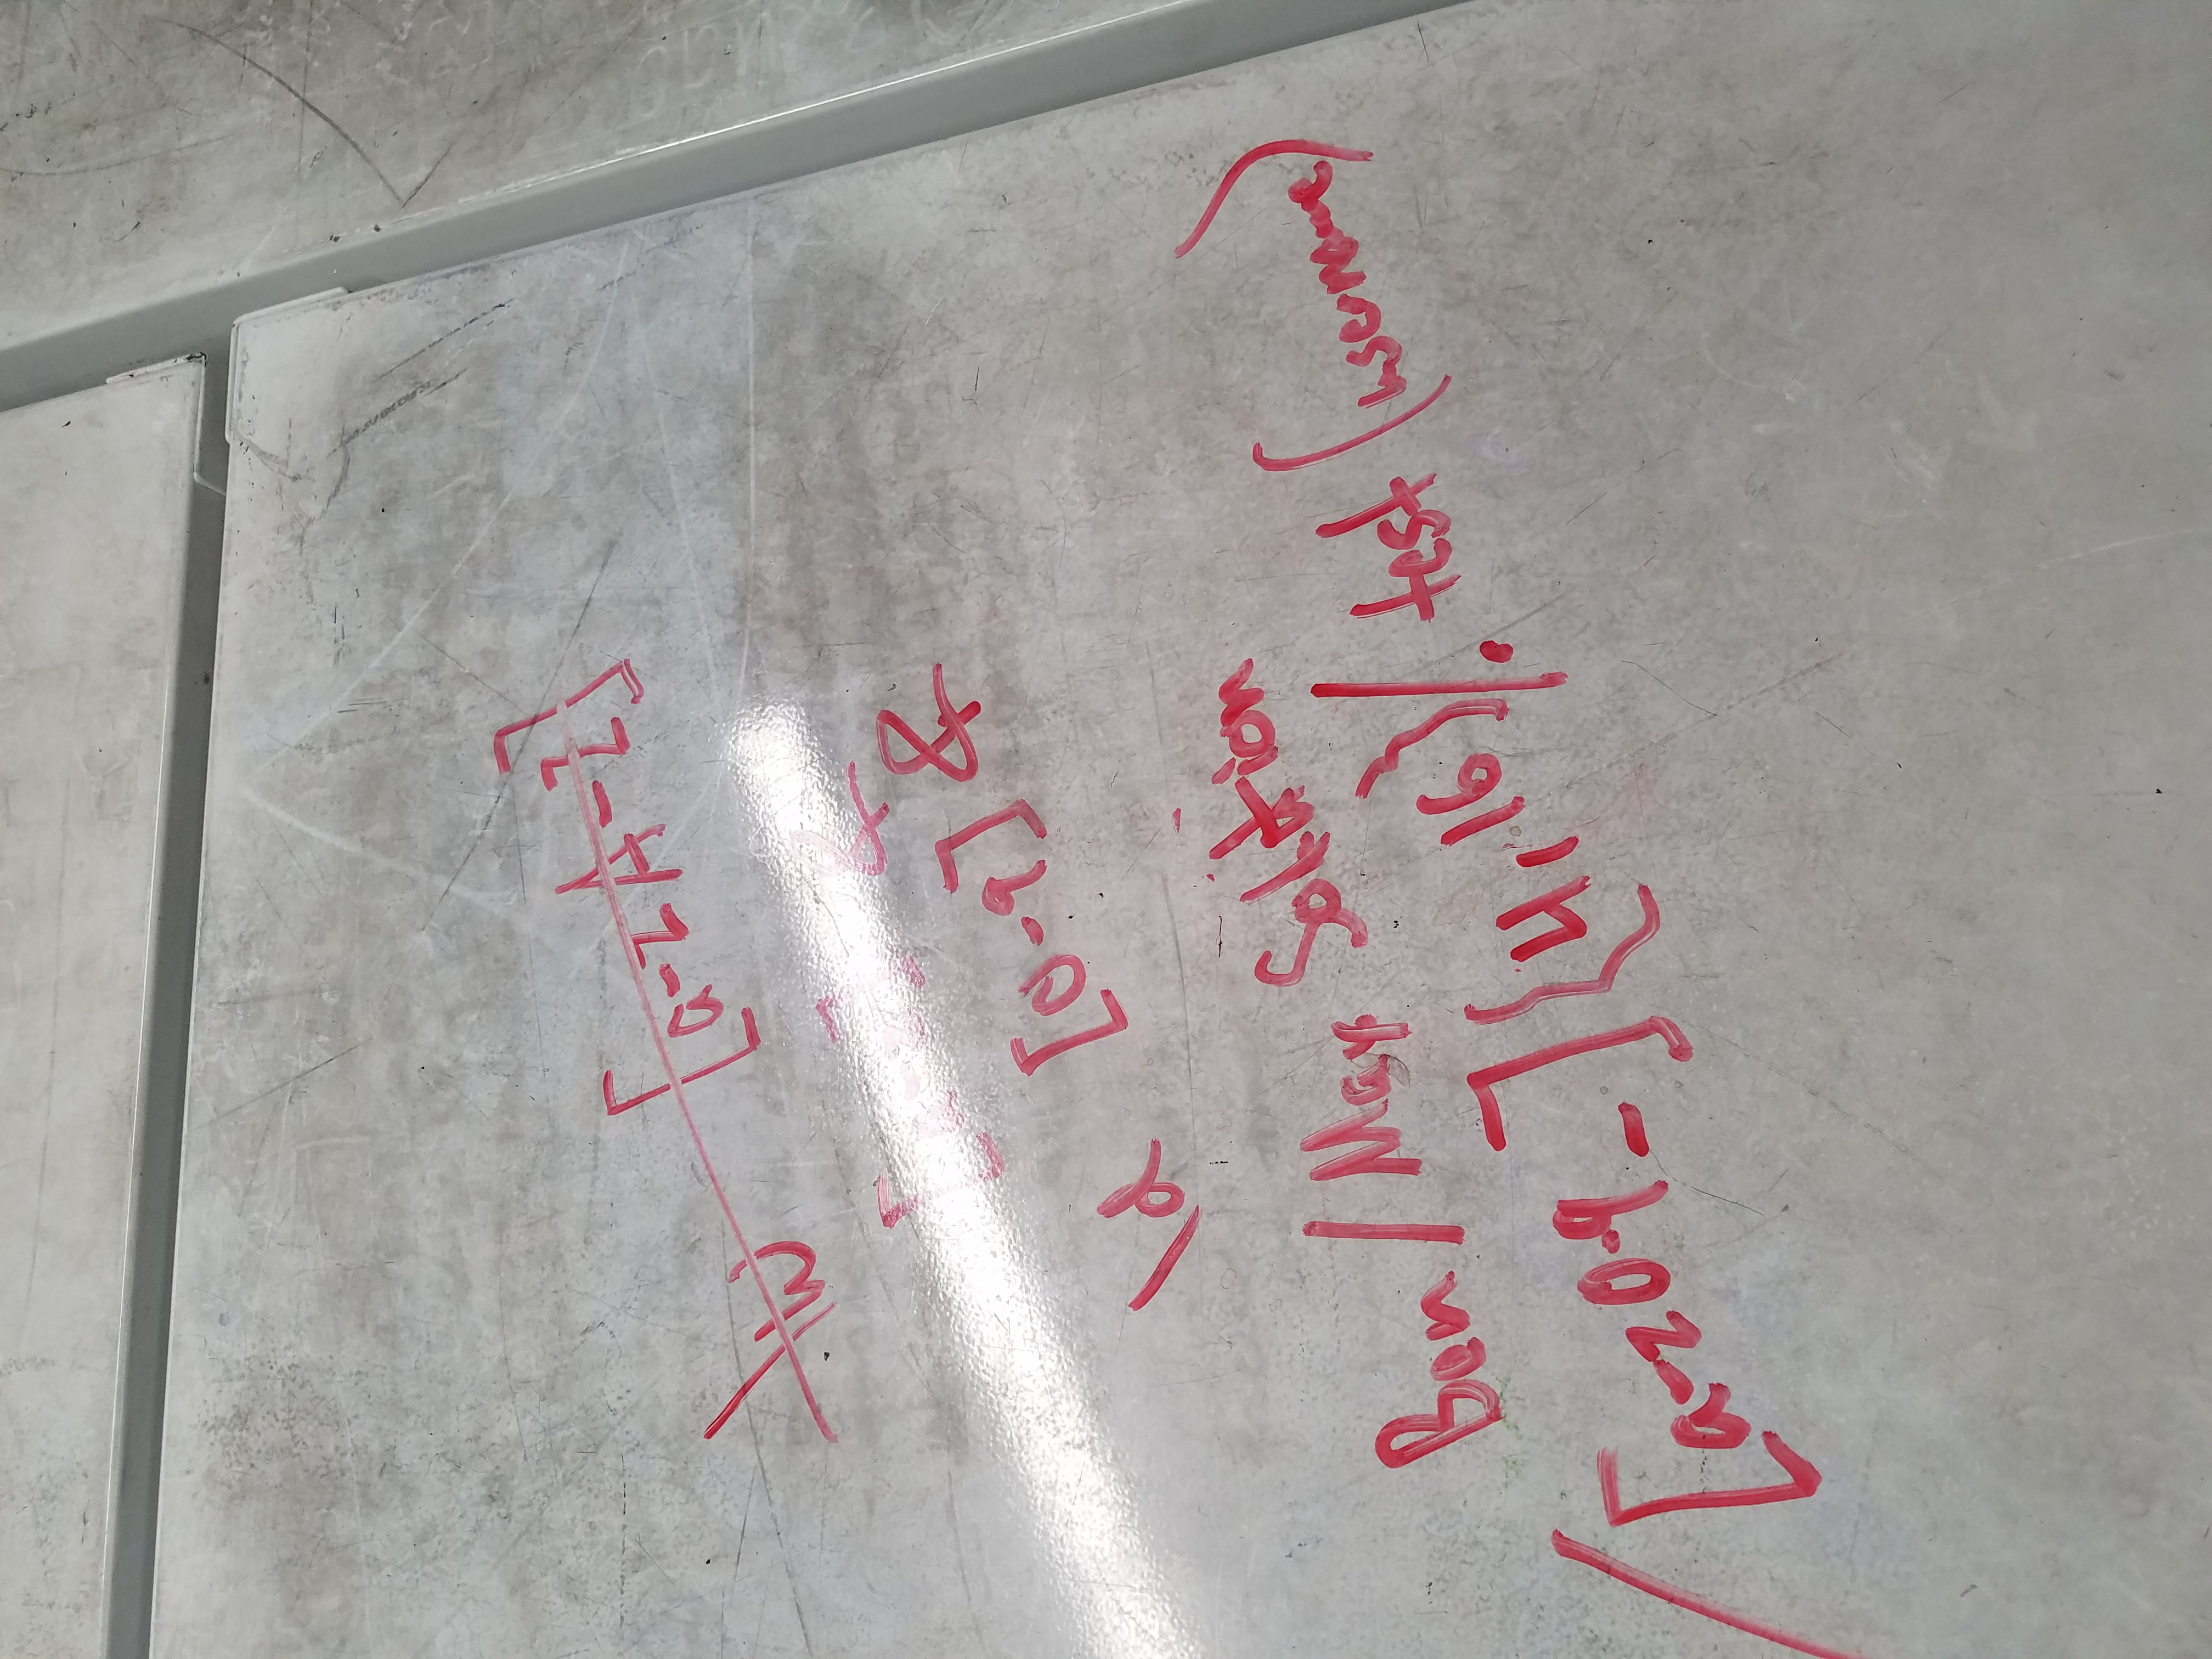 \w [a-zA-Z]
[a-z] &
\d [0-9] &
Ben/Max Solution
/[a-z0-9_]{4,16}/.test(username)